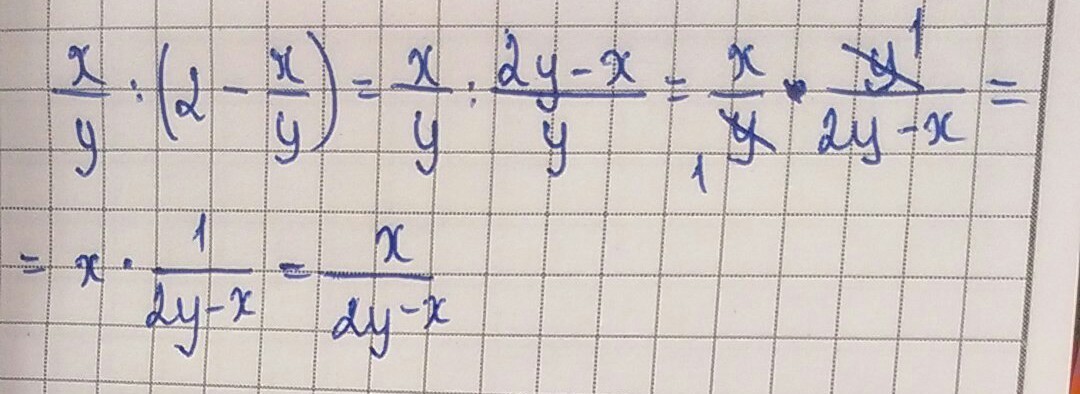 x/y : (2 - x/y) = x/y : (2y - x)/y = x/y · y/(2y - x) =
= x · 1/(2y - x) = x/(2y - x)